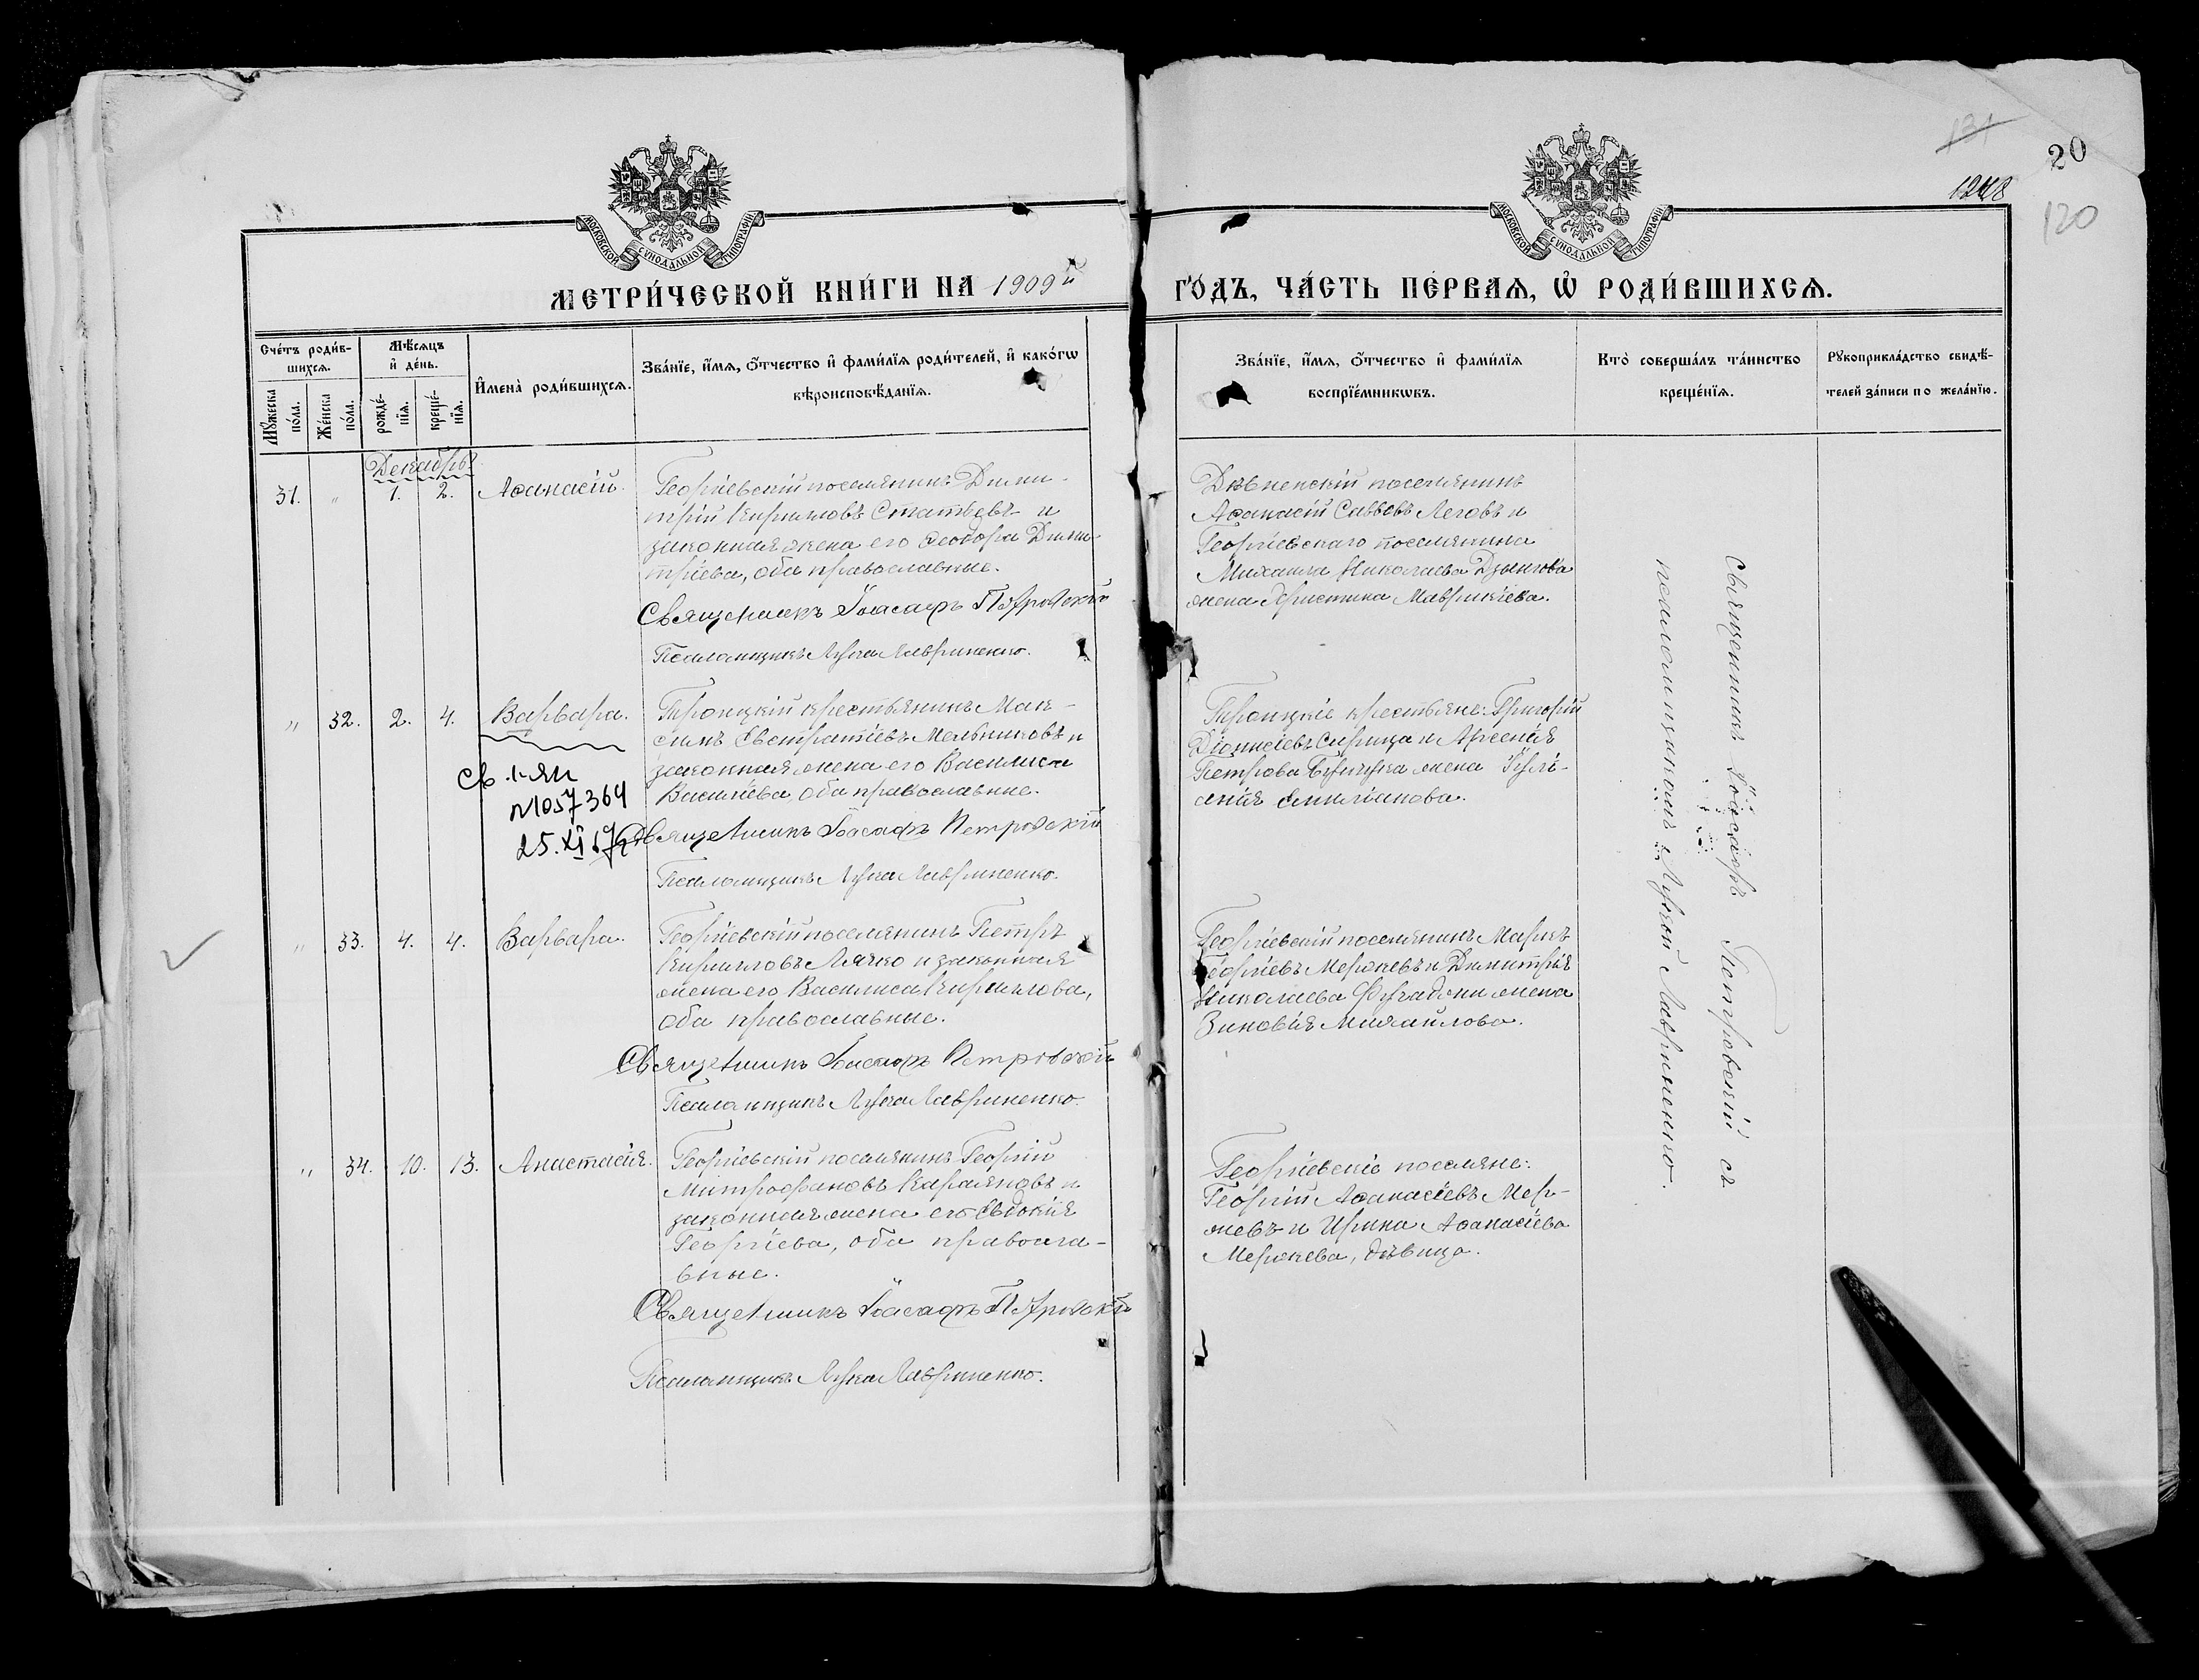 131
20
1248
120
МОСКОВСКОЙ СѴНОДАЛЬНОЙ ТИПОГРАФІИ
МОСКОВСКОЙ СѴНОДАЛЬНОЙ ТИПОГРАФІИ
МЕТРИ́ЧЕСКОЙ КНИ́ГИ НА 1909й
ГО́ДЪ, ЧА́СТЬ ПЕ́РВАѦ, Ѡ҆ РОДИ́ВШИХСѦ.
Сче́тъ роди́в-
шихсѧ.
Мꙋ́жеска по́ла.
Же́нска по́ла.
Мѣ́сѧцъ
и҆ де́нь.
рожде́-
нїѧ.
креще́-
нїѧ.
И҆мена̀ роди́вшихсѧ.
Зва́нїе, и҆́мѧ, ѻ҆́тчество и҆ фами́лїѧ роди́телей, и҆ како́гѡ
вѣроисповѣ́данїѧ.
Зва́нїе, и҆́мѧ, ѻ҆́тчество и҆ фами́лїѧ
воспрїе́мникѡвъ.
Кто̀ соверша́лъ та́инство
креще́нїѧ.
Рꙋкоприкла́дство свидѣ́-
телей за́писи по жела́нїю.
Декабрь
31. " 1. 2. Аѳанасій.
Георгіевскій поселянинъ Дими-
трій Кирилловъ Статѣевъ и
законная жена его Ѳеодора Дими-
тріева, оба православные.
Священникъ Іоасафъ Петровскій
Псаломщикъ Лука Лавриненко.
Аѳанасій Саввовъ Леговъ и
Георгіевскаго поселянина
Михаила Николаева Дзынгова
жена Христина Маврикіева.
" 32. 2. 4. Варвара.
Троицкій крестьянинъ Мак-
симъ Евстратіевъ Мельниковъ и
законная жена его Василиса
Василіева, оба православные.
Священникъ Іоасафъ Петровскій
Псаломщикъ Лука Лавриненко.
№ 1057364
25.XI
Троицкіе крестьяне: Григорій
Діонисіевъ Сирица и Арсенія
Петрова жена Іулі-
анія Емиліанова.
" 33. 4. 4. Варвара.
Георгіевскій поселянинъ Петръ
Кирилловъ Лячко и законная
жена его Василиса Кириллова,
оба православные.
Священникъ Іоасафъ Петровскій
Псаломщикъ Лука Лавриненко.
Георгіевскій поселянинъ Маркъ
Георгіевъ Мержевъ и Димитрія
Николаева жена
Зиновія Михайлова.
" 34. 10. 13. Анастасія.
Георгіевскій поселянинъ Георгій
Митрофановъ Караяновъ и
законная жена его Евдокія
Георгіева, оба православ-
вные.
Священникъ Іоасафъ Петровскій
Псаломщикъ Лука Лавриненко.
Георгіевскіе поселяне:
Георгій Аѳанасіевъ Мер-
жевъ и Ирина Аѳанасіева
Мержева, дѣвица.
Священникъ Іоасафъ Петровскій съ
псаломщикомъ Лукой Лавриненко.